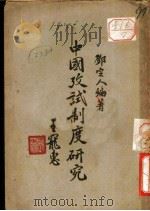 鄧定人編著
中國考試制度研究
王寵惠